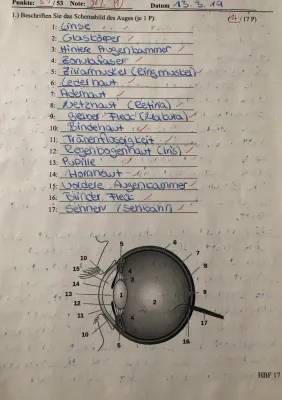 Punkte: /53 Note: Datum 13.3.19
1.) Beschriften Sie das Schemabild des Auges (je 1 P): /17 P)
1: Linse
2: Glaskörper
3: Hintere Augenkammer
4: Zonulafaser
5: Ziliarmuskel (Ringmuskel)
6: Lederhaut
7: Aderhaut
8: Netzhaut (Retina)
9: Gelber Fleck (Makula)
10: Bindehaut
11: Tränenflüssigkeit
12: Regenbogenhaut (Iris)
13: Pupille
14: Hornhaut
15: Vordere Augenkammer
16: Blinder Fleck
17: Sehnerv /Sehbahn
5 6
10 7
15 4 8
14 3
13 1 2 9
12
11
10 4
5 16 17
HBF 17